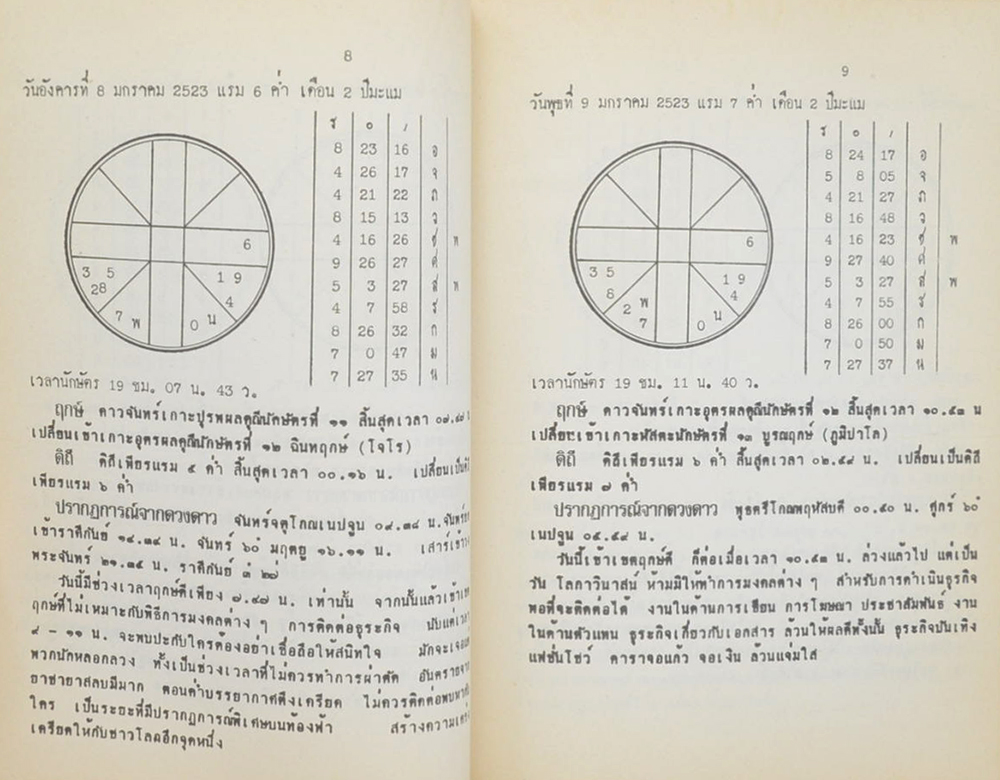 8
วันอังคารที่ 8 มกราคม 2523 แรม 6 ค่ำ เดือน 2 ปีมะแม
ร ๐ /
8 23 16 อ
4 26 17 จ
4 21 22 ภ
8 15 13 ว
4 16 26 ช พ
9 26 27 ศ
5 3 27 ส พ
4 7 58 ร
8 26 32 ก
7 0 47 ม
7 27 35 น
6
3 5
28
7 พ
1 9
4
0 น
เวลานักษัตร 19 ชม. 07 น. 43 ว.
ฤกษ์ ดาวจันทร์เกาะปุรพผลคุณีนักษัตรที่ ๑๑ สิ้นสุดเวลา
เปลี่ยนเข้าเกาะอุตรผลคุณีนักษัตรที่ ๑๒ ฉินทฤกษ์ (โจโร)
ดิถี ดิถีเพียรแรม ๕ ค่ำ สิ้นสุดเวลา ๐๐.๑๖ น. เปลี่ยนเป็นดิถี
เพียรแรม ๖ ค่ำ
ปรากฏการณ์จากดวงดาว จันทร์จตุโกณเนปจูน ๐๙.๓๘ น.
เข้าราศีกันย์ ๑๔.๓๙ น. จันทร์ ๖๐ มฤตยู ๑๖.๑๑ น. เสาร์เข้า
พระจันทร์ ๒๑.๓๕ น. ราศีกันย์ ๓ ๒๗
วันนี้มีช่วงเวลาฤกษ์ดีเพียง ๗.๔๗ น. เท่านั้น จากนั้นแล้วเข้า
ฤกษ์ที่ไม่เหมาะกับพิธีการมงคลต่าง ๆ การติดต่อธุระกิจ นับแต่
๙ - ๑๑ น. จะพบปะกับใครต้องอย่าเชื่อถือให้สนิทใจ มักจะเจอ
พวกนักหลอกลวง ทั้งเป็นช่วงเวลาที่ไม่ควรทำการผ่าตัด อันตราย
ยาชายาสลบมีมาก ตอนค่ำบรรยากาศตึงเครียด ไม่ควรติดต่อพบหา
ใคร เป็นระยะที่มีปรากฏการณ์พิเศษบนท้องฟ้า สร้างความ
เครียดให้กับชาวโลกอีกจุดหนึ่ง
9
วันพุธที่ 9 มกราคม 2523 แรม 7 ค่ำ เดือน 2 ปีมะแม
ร ๐ /
8 24 17 อ
5 8 05 จ
4 21 27 ภ
8 16 48 ว
4 16 23 ช พ
9 27 40 ศ
5 3 27 ส พ
4 7 55 ร
8 26 00 ก
7 0 50 ม
7 27 37 น
6
3 5
8
2 พ
7
1 9
4
0 น
เวลานักษัตร 19 ชม. 11 น. 40 ว.
ฤกษ์ ดาวจันทร์เกาะอุตรผลคุณีนักษัตรที่ ๑๒ สิ้นสุดเวลา ๑๐.๕๓ น
เปลี่ยนเข้าเกาะหัสตะนักษัตรที่ ๑๓ บูรณฤกษ์ (ภูมิปาโล)
ดิถี ดิถีเพียรแรม ๖ ค่ำ สิ้นสุดเวลา ๐๒.๕๙ น. เปลี่ยนเป็นดิถี
เพียรแรม ๗ ค่ำ
ปรากฏการณ์จากดวงดาว พุธตรีโกณพฤหัสบดี ๐๐.๕๐ น. ศุกร์ ๖๐
เนปจูน ๐๕.๕๔ น.
วันนี้เข้าเขตฤกษ์ดี ก็ต่อเมื่อเวลา ๑๐.๕๓ น. ล่วงแล้วไป แต่เป็น
วัน โลกาวินาสน์ ห้ามมิให้ทำการมงคลต่าง ๆ สำหรับการดำเนินธุรกิจ
พอที่จะติดต่อได้ งานในด้านการเขียน การโฆษณา ประชาสัมพันธ์ งาน
ในด้านตัวแทน ธุระกิจเกี่ยวกับเอกสาร ล้วนให้ผลดีทั้งนั้น ธุระกิจบันเทิง
แฟชั่นโชว์ ดาราจอแก้ว จอเงิน ล้วนแจ่มใส